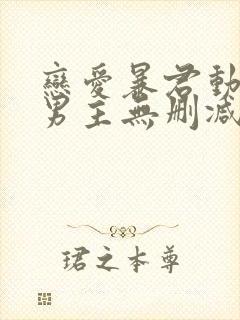 戀愛暴君動
男主無刪減
珺之本尊